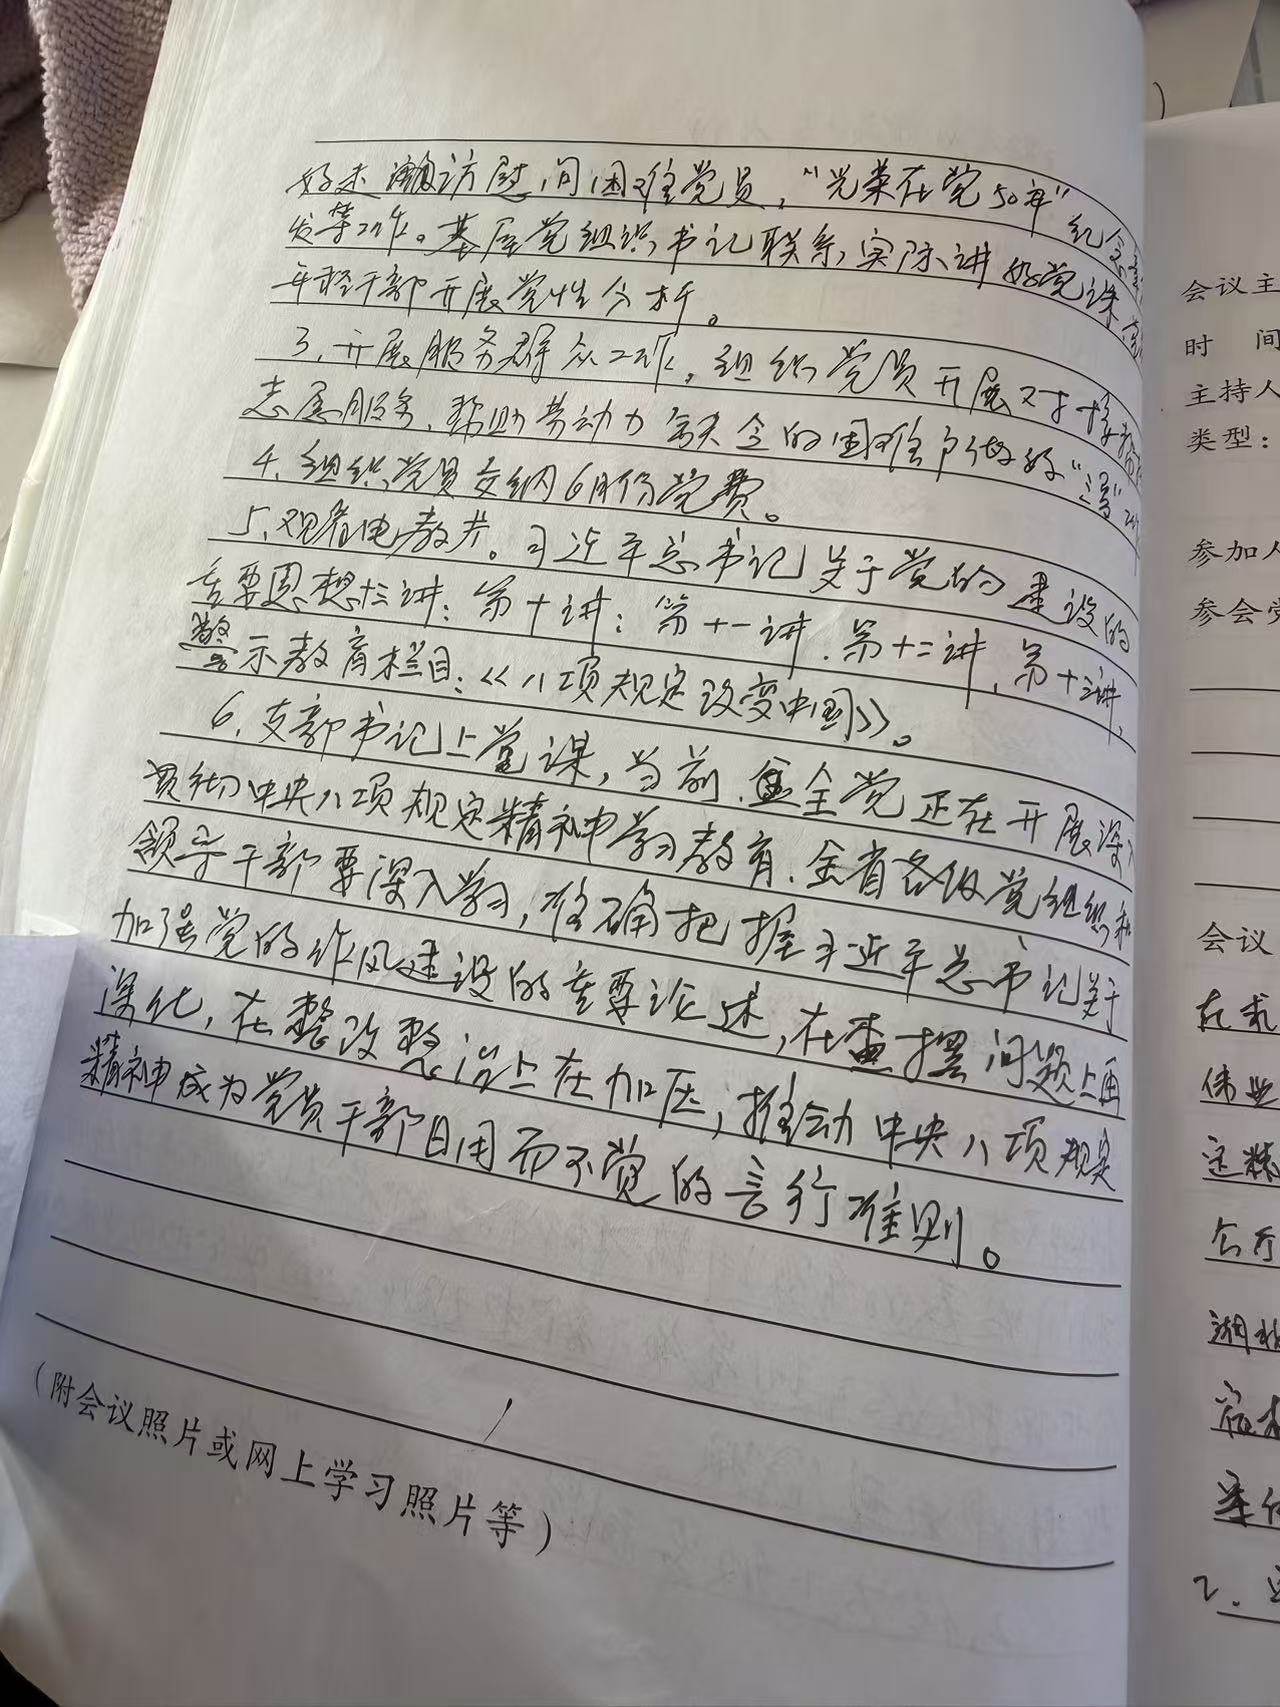 好走访慰问困难党员，“光荣在党50年”纪念章
发等工作。基层党组织书记联系实际讲好党课，
年轻干部开展党性分析。
3、开展服务群众工作，组织党员开展对接
志愿服务，帮助劳动力缺乏的困难户做好“三夏”工作
4、组织党员交纳6月份党费。
5、观看电教片。习近平总书记关于党的建设的
重要思想十三讲：第十讲；第十一讲、第十二讲、第十三讲、
警示教育栏目：《八项规定改变中国》。
6、支部书记上党课，当前，全党正在开展深入
贯彻中央八项规定精神学习教育、全省各级党组织和
领导干部要深入学习，准确把握习近平总书记关于
加强党的作风建设的重要论述，在查摆问题上再
深化，在整改整治上在加压，推动中央八项规定
精神成为党员干部日用而不觉的言行准则。
（附会议照片或网上学习照片等）
会议主
时 间
主持人
类型：
参加人
参会党
会议
伟业
定精
湖北
2.